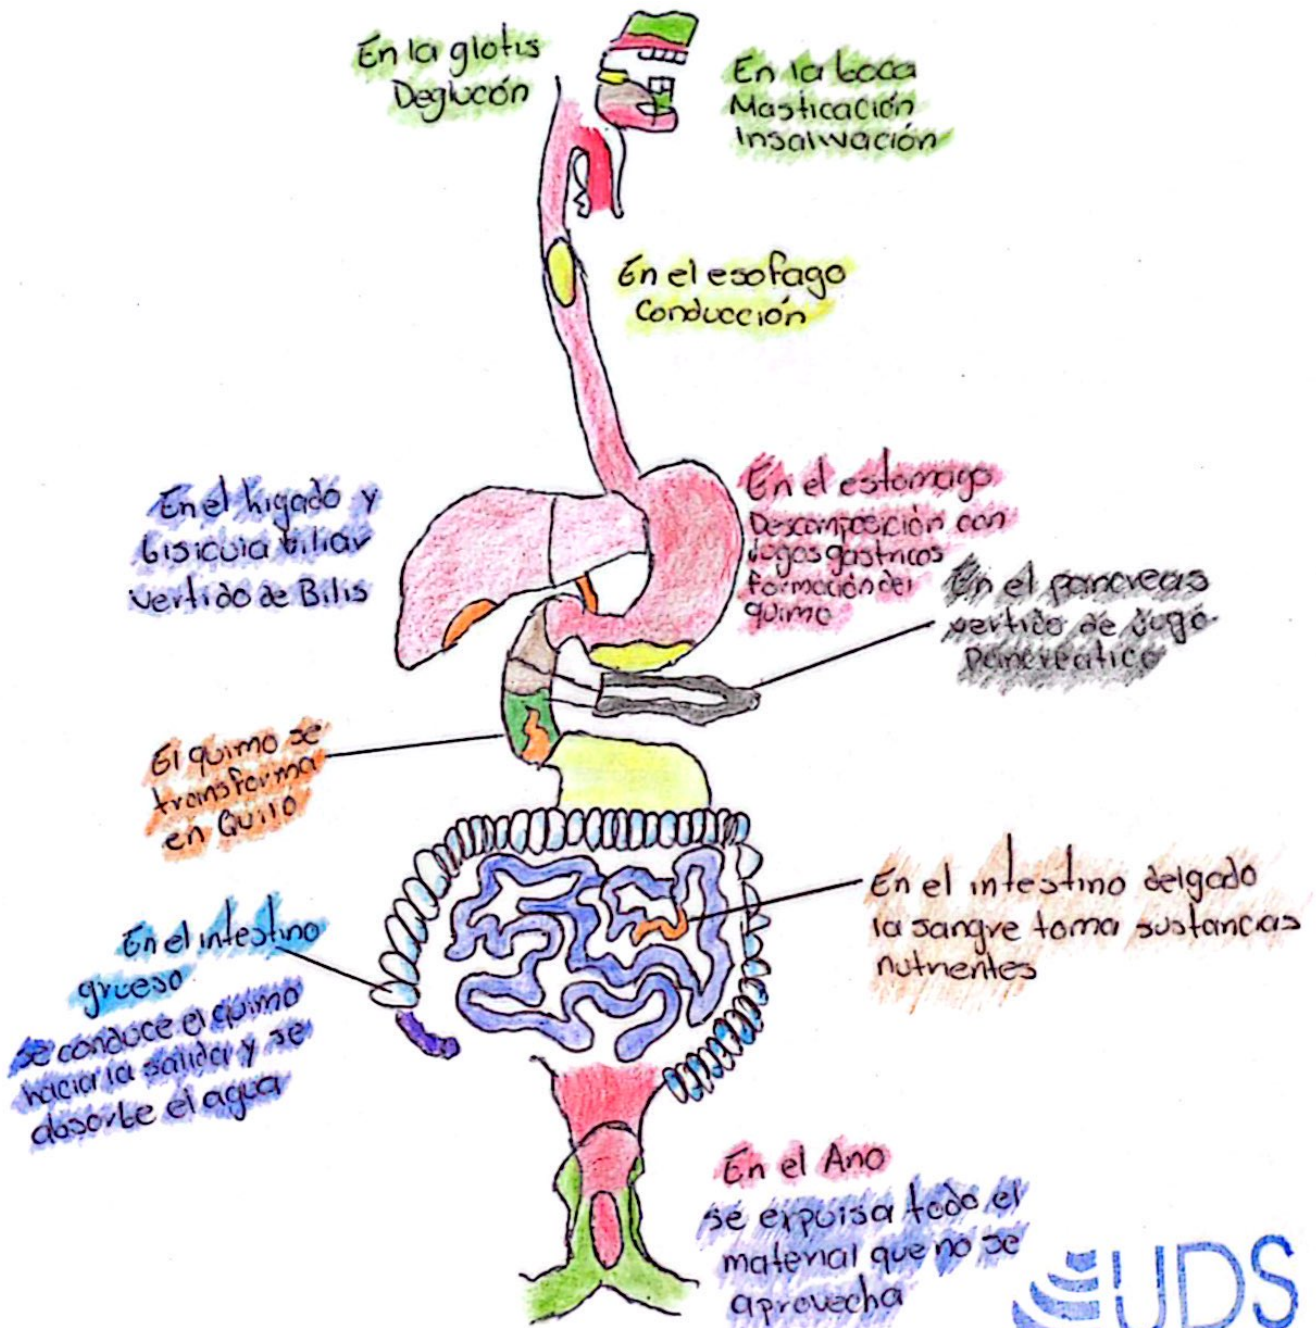 En la glotis
Deglucón
En la boca
Masticación
Insalivación
En el esofago
Conducción
En el higado y
bisicula biliar
vertido de Bilis
En el estomago
Descomposición con
Jugos gastricos
formación del
quimo
En el pancreas
vertido de Jugo
Pancreatico
El quimo se
transforma
en Quilo
En el intestino delgado
la sangre toma sustancias
nutrientes
En el intestino
grueso
se conduce el quimo
hacia la salida y se
absorbe el agua
En el Ano
se expulsa todo el
material que no se
aprovecha
UDS